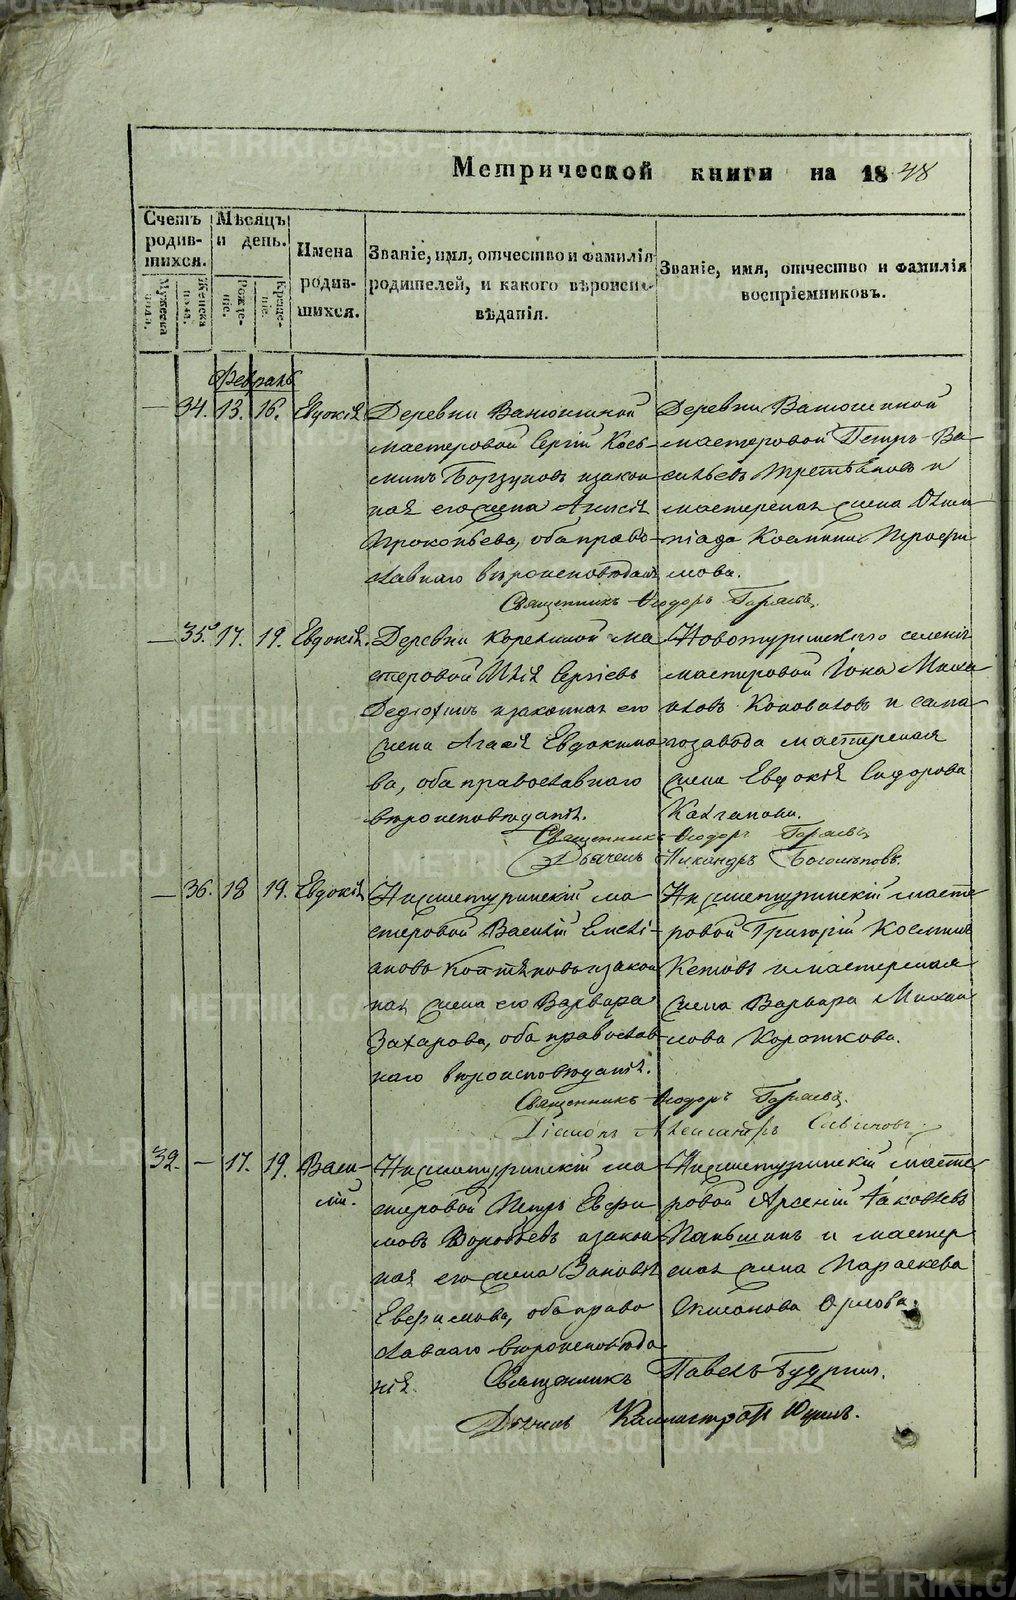 Метрической книги на 1848
Счетъ родив-шихся.
Мужеска пола.
Женска пола.
Мѣсяцъ и день.
Рожде-ніе.
Креще-ніе.
Имена родив-шихся.
Званіе, имя, отчество и фамилія
родителей, и какого вѣроиспо-
вѣданія.
Званіе, имя, отчество и фамилія
воспріемниковъ.
Февраль
— 34. 13. 16. Евдокія
Деревни Ванюшиной
мастеровой Сергій Козь-
минъ Борзуновъ и закон
ная его жена Анисія
Прокопьева, оба право-
славнаго вѣроисповѣданія
Деревни Ванюшиной
мастеровой Петръ Ва-
сильевъ Третьяковъ и
мастерская жена Олим
піада Козмина Трофи
мова.
Священникъ Ѳеодоръ
— 35. 17. 19. Евдокія.
Деревни Корелиной ма
стеровой Илія Сергіевъ
Дедюхинъ и законная его
жена Агафія Евдокимо
ва, оба православнаго
вѣроисповѣданія.
Новотуринскаго селенія
мастеровой Іона Михай
ловъ Коноваловъ и сама
гозавода мастерская
жена Евдокія Сидорова
Священникъ Ѳеодоръ
Дьячекъ Никандръ
— 36. 18 19. Евдокія
Нижнетуринскій ма
стеровой Василій Емелі-
ановъ и закон
ная жена его Варвара
Захарова, оба православ
наго вѣроисповѣданія.
Нижнетуринскій масте
ровой Григорій Козминъ
Кетовъ и мастерская
жена Варвара Михай
лова Короткова.
Священникъ Ѳеодоръ
Діаконъ Александръ
39. — 17. 19. Васи-
лій.
Нижнетуринскій ма
стеровой Петръ Евфи
мовъ Воробьевъ и закон
ная его жена Зиновія
Евфимова, оба право
славнаго вѣроисповѣда
нія.
Нижнетуринскій масте
ровой Арсеній Яковлевъ
Паньшинъ и мастер
ская жена Параскева
Орлова.
Священникъ Павелъ
Дьячекъ Каллистратъ
METRIKI.GASO-URAL.RU